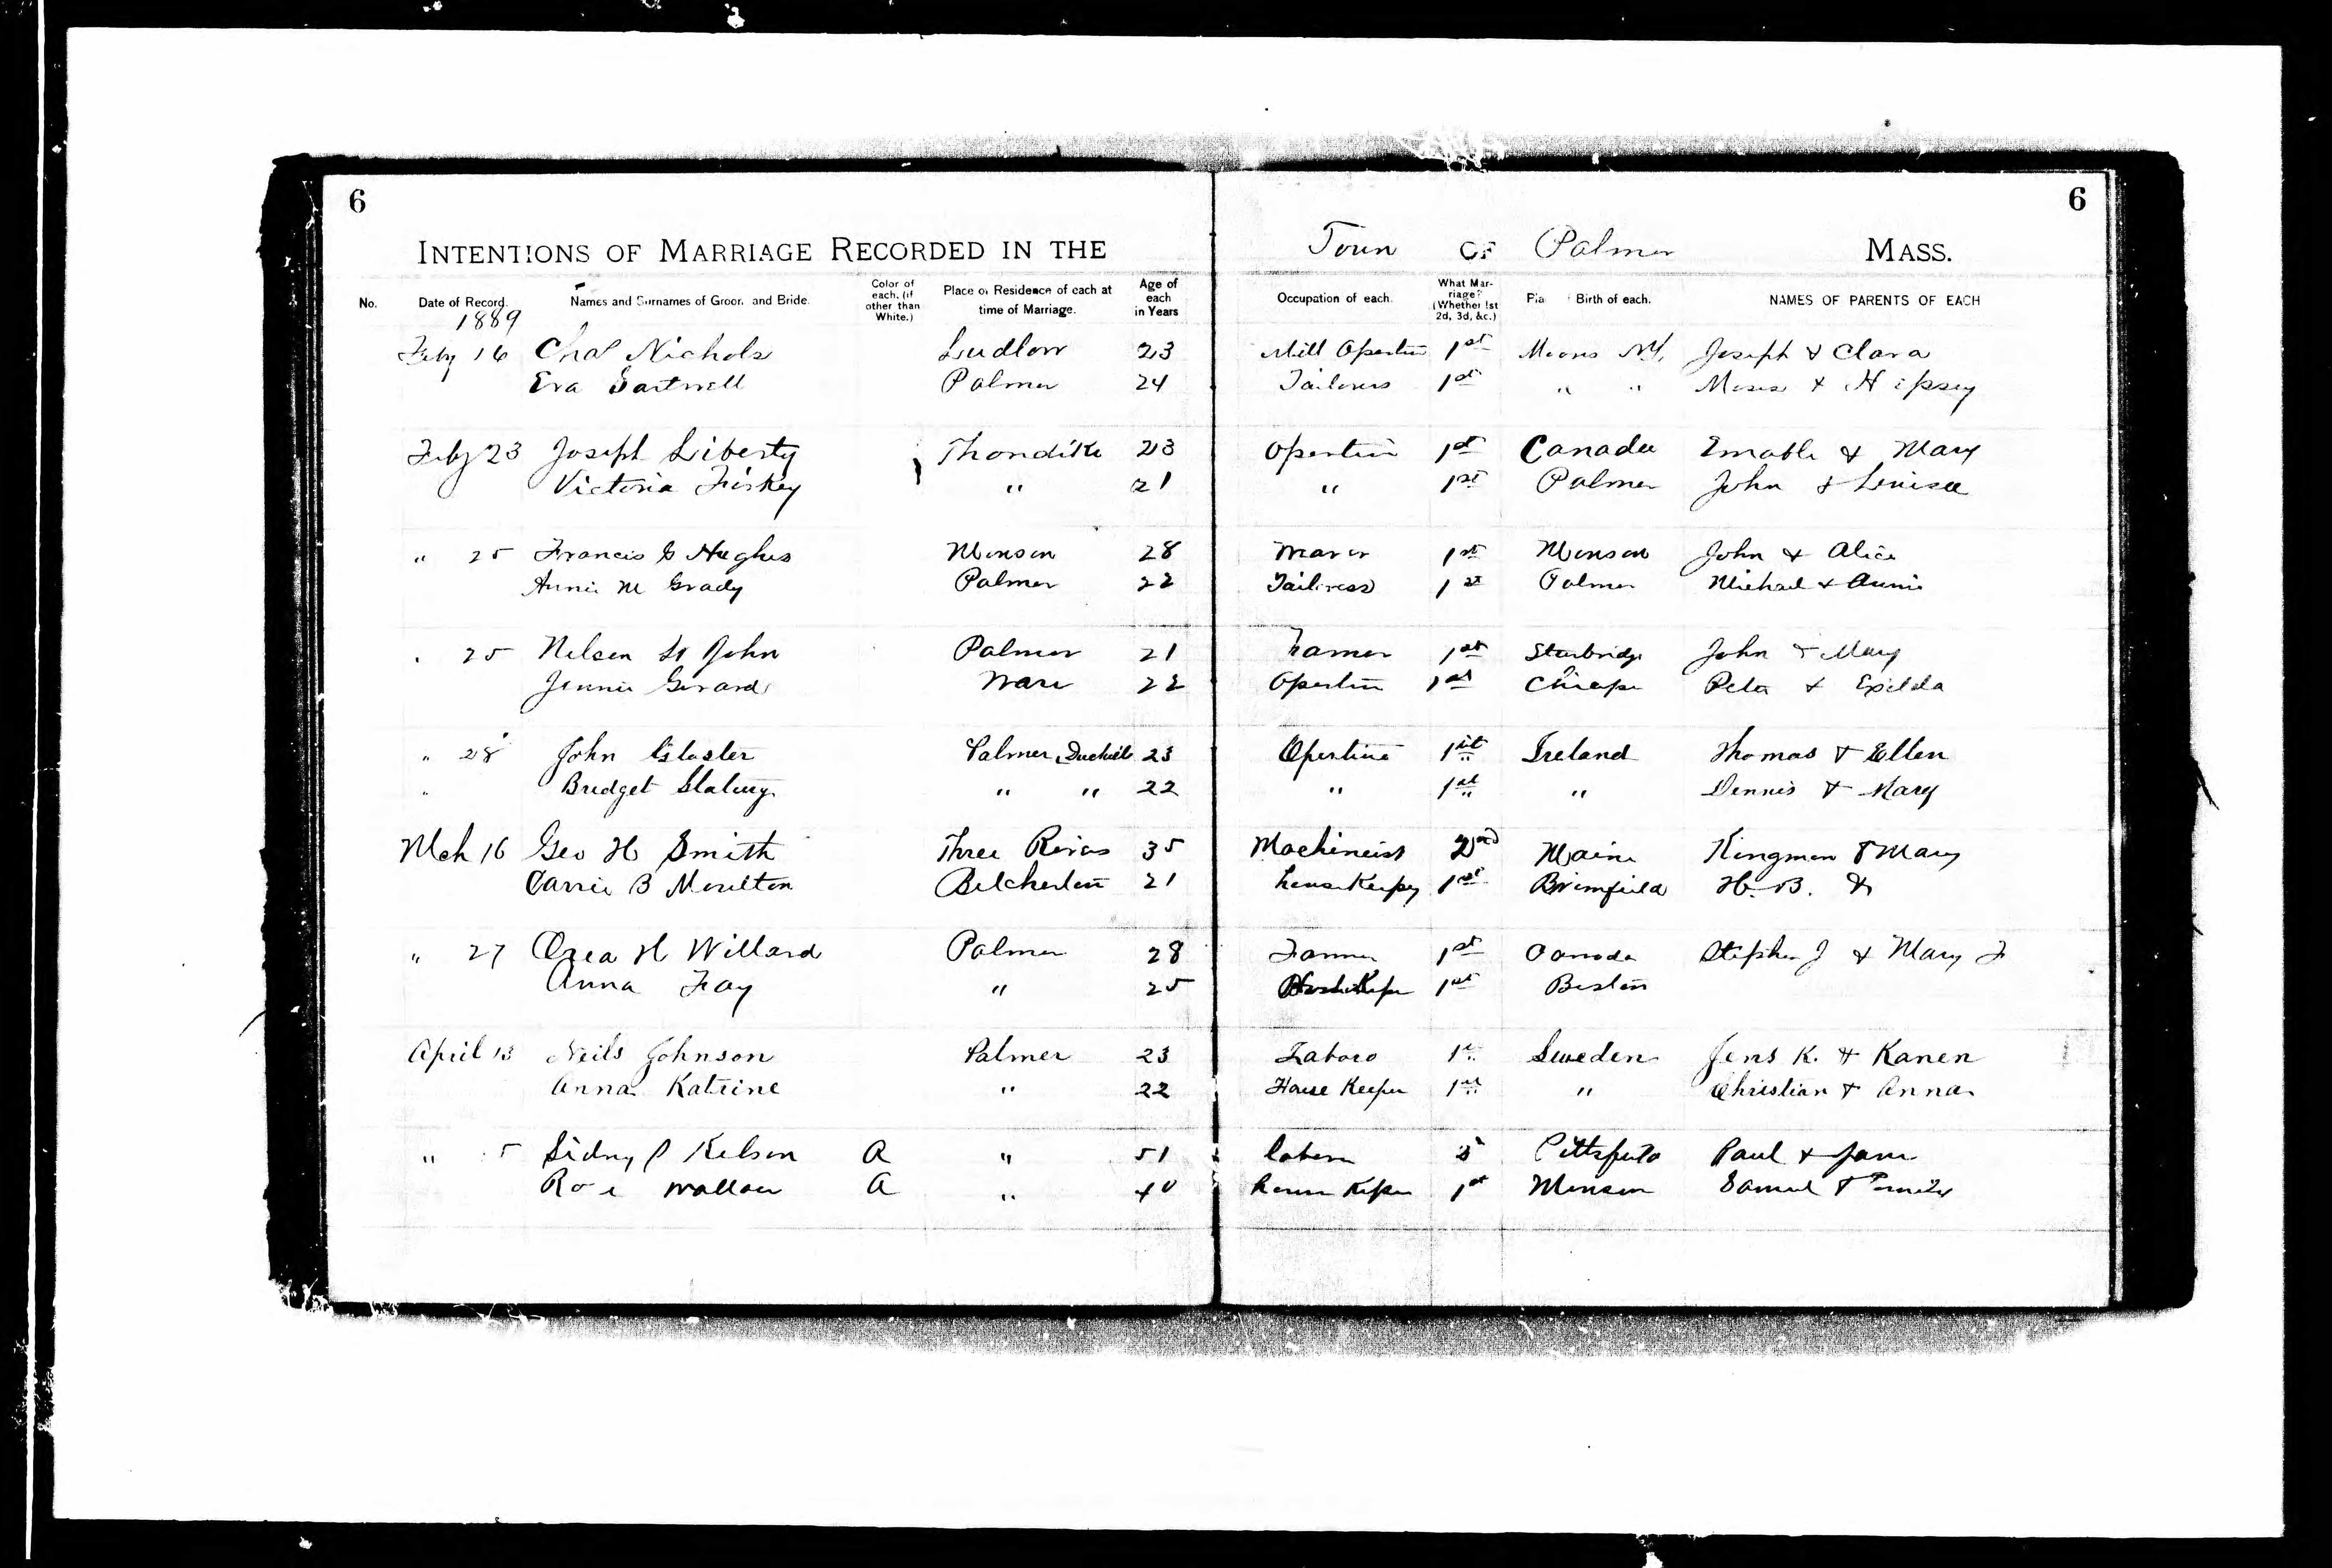 6 6
INTENTIONS OF MARRIAGE RECORDED IN THE Town OF Palmer MASS.
No. Date of Record. Names and Surnames of Groom and Bride. Color of each, (if other than White.) Place of Residence of each at time of Marriage. Age of each in Years Occupation of each. What Marriage? (Whether 1st 2d, 3d, &c.) Birth of each. NAMES OF PARENTS OF EACH
1889
Feby 16 Chas Nichols Ludlow 23 Mill 1st N.Y. Joseph & Clara
Eva Sartwell Palmer 24 1st " " Moses & Hipsey
Feby 23 Joseph Liberty Thondike 23 1st Canada & Mary
Victoria Fiskey " 21 " 1st Palmer John & Louisa
" 25 Francis Hughes Monson 28 1st Monson John & Alice
Annie M Grady Palmer 22 Tailoress 1st Palmer Michael & Annie
25 Nelson St John Palmer 21 Farmer 1st Sturbridge John & Mary
Jennie Gerard Ware 22 1st Peter & Exilda
" 28 John Palmer 23 1st Ireland Thomas & Ellen
" Bridget " " 22 " 1st " Dennis & Mary
Mch 16 Geo H Smith Three Rivers 35 Machineist 2nd Maine Kingman & Mary
Carrie B Moulton 21 1st Brimfield H. B. &
" 27 H Willard Palmer 28 Farmer 1st Canada Stephen J & Mary F
Anna Fay " 25 1st Boston
April 13 Neils Johnson Palmer 23 1st Sweden Jens K. & Karen
Anna Katrine " 22 House Keeper 1st " Christian & Anna
" Sidny P A " 51 Pittsfield Paul & Jane
A " 40 1st Monson Samuel &